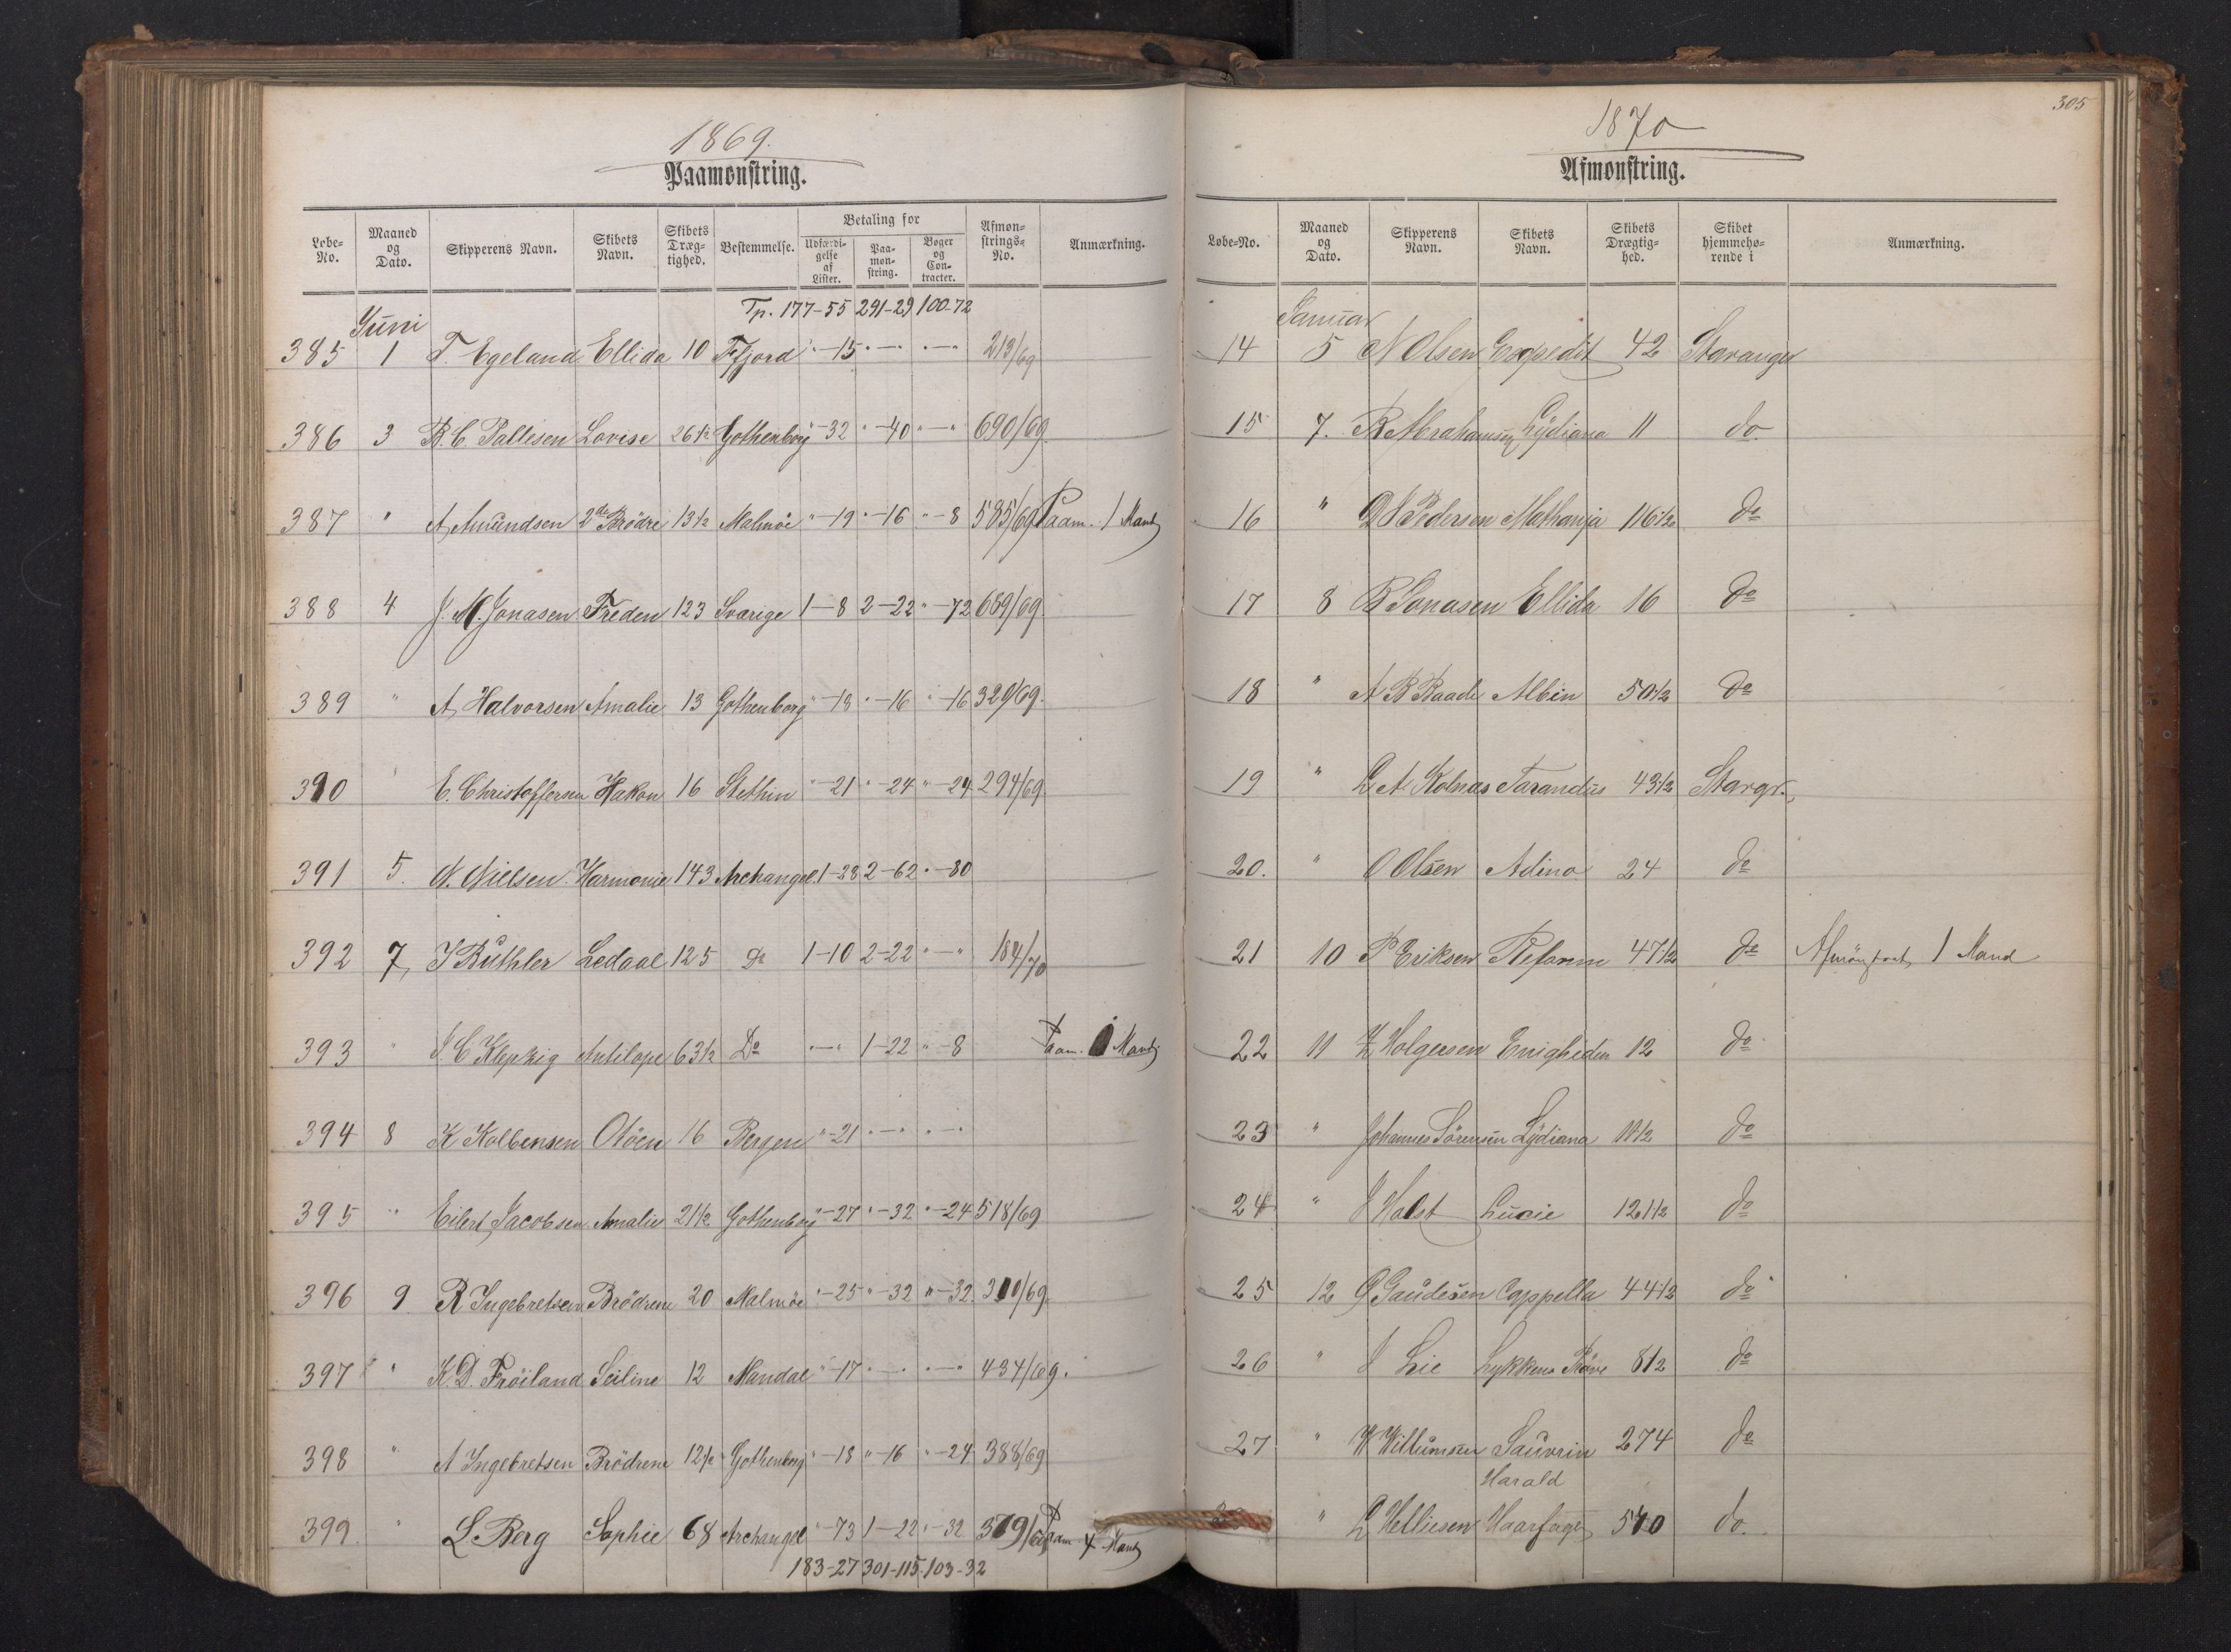 1869.
Paamønstring.
Løbe-No. Maaned og Dato. Skipperens Navn. Skibets Navn. Skibets Dræg-tighed. Bestemmelse. Betaling for Udfærdi-gelse af Lister. Paa-møn-string. Bøger og Con-tracter. Afmøn-strings-No. Anmærkning.
Tp. 177-55 291-29 100-72
Juni
385 1 T. Egeland Ellida 10 Ffjord "-15 "-" "-" 213/69
386 3 B. C. Pallesen Lovise 26 1/2 Gothenborg "-32 "-40 "-" 690/69
387 " A. Amundsen 2de Brödre 13 1/2 Malmöe "-19 "-16 "-8 585/69 Paam. 1 Mand
388 4 J. M. Jonasen Freden 123 Sverige 1-8 2-22 "-72 689/69.
389 " A. Halvorsen Amalie 13 Gothenborg "-18 "-16 "-16 329/69.
390 " E. Christoffersen Hakon 16 Stethin "-21 "-24 "-24 294/69
391 5. N. Nielsen Harmonie 143 Archangel 1-28 2-62 "-80
392 7 J Büthler Ledaal 125 Do 1-10 2-22 "-" 184/70
393 " J. C Kleptzig Antilope 63 1/2 Do "-" 1-22 "-8 Paam. Mand
394 8 K Kolbensen Otöen 16 Bergen "-21 "-" "-"
395 " Eilert Jacobsen Amalie 21 1/2 Gothenborg "-27 "-32 "-24 518/69
396 9 R Ingebretsen Brödrene 20 Malmöe "-25 "-32 "-32. 310/69
397 " K. D. Fröiland Seiline 12 Mandal "-17 "-" "-" 434/69.
398 " A Ingebretsen Brödrene 12 1/2 Gothenborg "-18 "-16 "-24 388/69
399 " L. Berg Sophie 68 Archangel "-73 1-22 "-32 379/69 Paam 4 Mand
183-27 301-115 103-32
305
1870
Afmønstring.
Løbe-No. Maaned og Dato. Skipperens Navn. Skibets Navn. Skibets Drægtig-hed. Skibet hjemmehø-rende i Anmærkning.
Januar
14 5 N Olsen Expedit 42 Stavanger
15 7. R Abrahamsen Lydiana 11 do
16 " Pedersen Mathanja 116 1/2 do
17 8 B Jonasen Ellida 16 do
18 " A B Raade Albin 50 1/2 do
19 " L A Kolnas Tarandus 43 1/2 Stavgr.
20. " O Olsen Adina 24 do
21 10 P Eriksen 47 1/2 do Afmönstret 1 Mand
22 11 Holgersen Enigheden 12 do
23 " Johannes Sörensen Lydiana 11 1/2 do
24 " J Holst Lucie 121 1/2 do
25 12 G Gaudesen Cappella 44 1/2 do
26 " J Lie Lykkens Pröve 8 1/2 do
27 " W Willumsen Sauvrin 274 do
Harald
" Helliesen Haarfager 540 do.